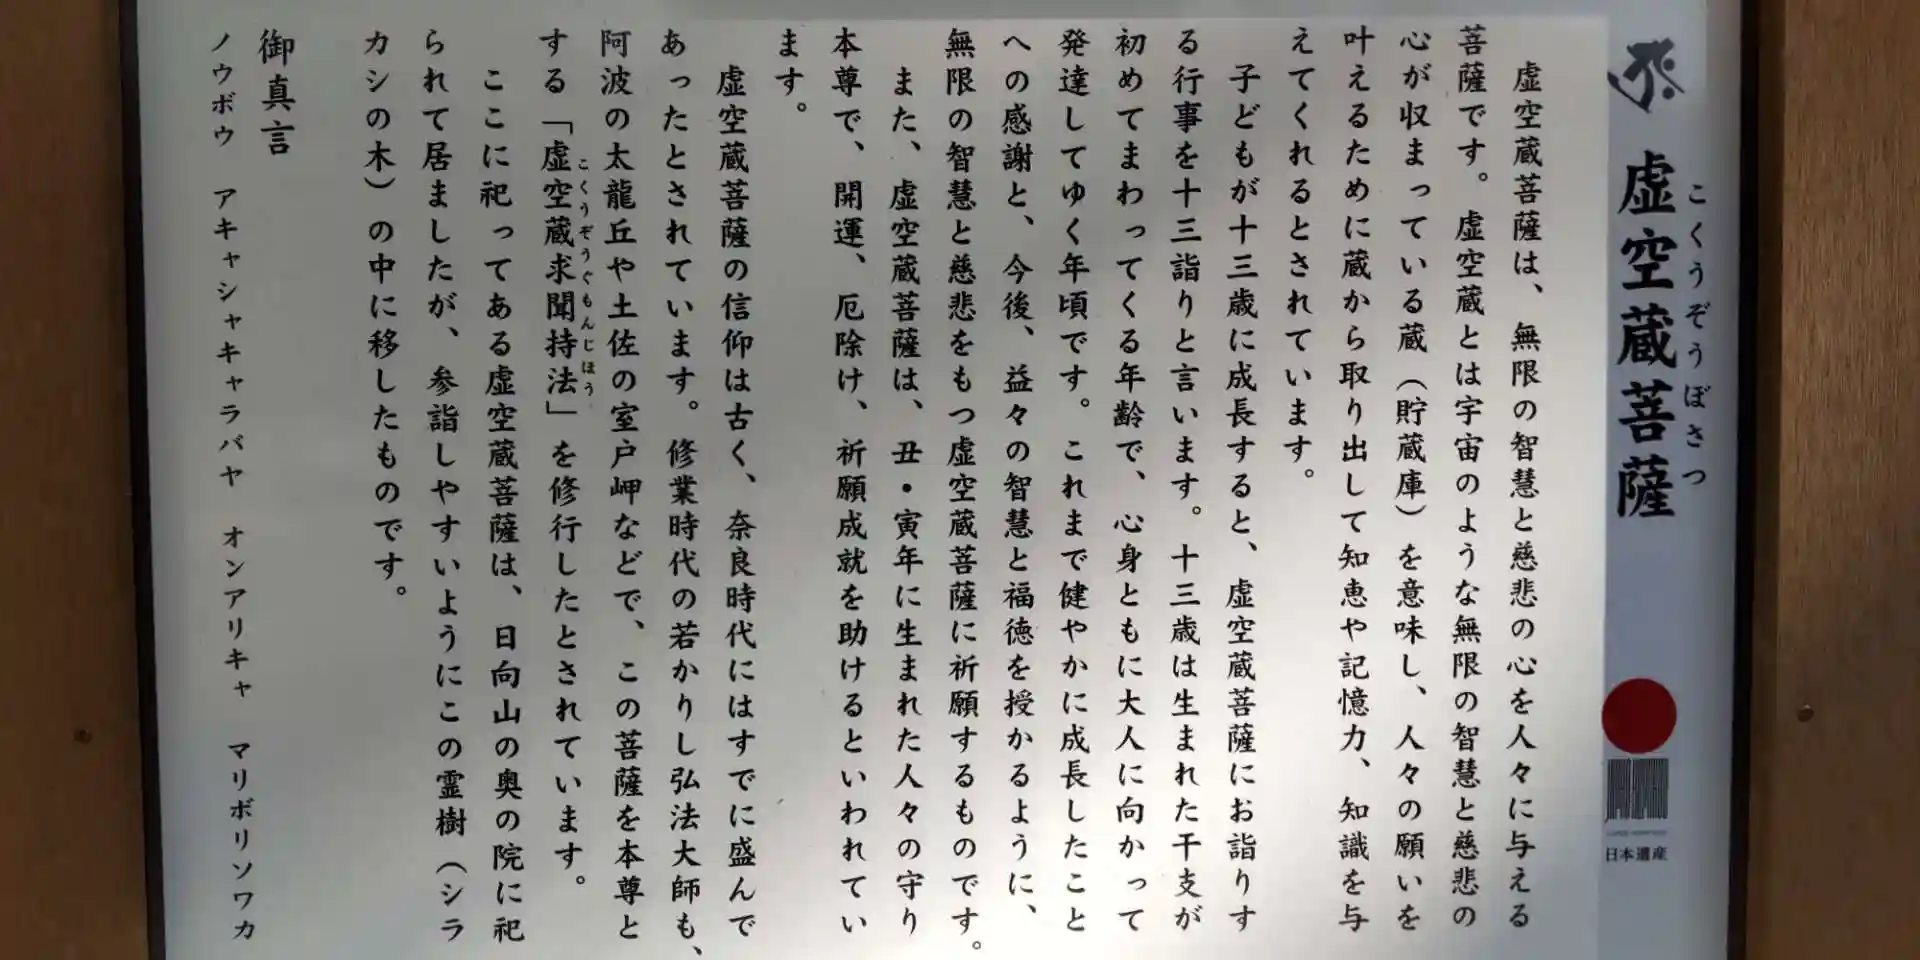 虚空蔵菩薩
こくうぞうぼさつ
日本遺産
虚空蔵菩薩は、無限の智慧と慈悲の心を人々に与える
菩薩です。虚空蔵とは宇宙のような無限の智慧と慈悲の
心が収まっている蔵（貯蔵庫）を意味し、人々の願いを
叶えるために蔵から取り出して知恵や記憶力、知識を与
えてくれるとされています。
子どもが十三歳に成長すると、虚空蔵菩薩にお詣りす
る行事を十三詣りと言います。十三歳は生まれた干支が
初めてまわってくる年齢で、心身ともに大人に向かって
発達してゆく年頃です。これまで健やかに成長したこと
への感謝と、今後、益々の智慧と福徳を授かるように、
無限の智慧と慈悲をもつ虚空蔵菩薩に祈願するものです。
また、虚空蔵菩薩は、丑・寅年に生まれた人々の守り
本尊で、開運、厄除け、祈願成就を助けるといわれてい
ます。
虚空蔵菩薩の信仰は古く、奈良時代にはすでに盛んで
あったとされています。修業時代の若かりし弘法大師も、
阿波の太龍丘や土佐の室戸岬などで、この菩薩を本尊と
する「虚空蔵求聞持法」を修行したとされています。
こくうぞうぐもんじほう
ここに祀ってある虚空蔵菩薩は、日向山の奥の院に祀
られて居ましたが、参詣しやすいようにこの霊樹（シラ
カシの木）の中に移したものです。
御真言
ノウボウ　アキャシャキャラバヤ　オンアリキャ　マリボリソワカ